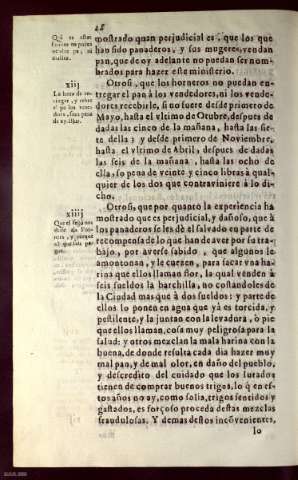 mostrado quan perjudicial es, que los que
han sido panaderos, y sus mugeres, vendan
pan, que de oy adelante no puedan ser nom-
brados para hazer este ministerio.
xiij
Otrosi, que los horneros no puedan en-
tregar el pan à los vendedores, ni los vende-
dores recebirle, si no fuere desde primero de
Mayo, hasta el vltimo de Otubre, despues de
dadas las cinco de la mañana, hasta las sie-
te della; y desde primero de Noviembre,
hasta el vltimo de Abril, despues de dadas
las seis de la mañana, hasta las ocho de
ella, so pena de veinte y cinco libras à qual-
quier de los dos que contraviniere à lo di-
cho.
xiiij
Otrosi, que por quanto la experiencia ha
mostrado que es perjudicial, y dañoso, que à
los panaderos se les dè el salvado en parte de
recompensa de lo que han de aver por su tra-
bajo, por averse sabido, que algunos le
amontonan, y le cuezen, para sacar vna ha-
rina que ellos llaman flor, la qual venden à
seis sueldos la barchilla, no costandoles de
la Ciudad mas que à dos sueldos: y parte de
ellos lo ponen en agua que yà es torcida, y
pestilente, y la juntan con la levadura, ò pie
que ellos llaman, cosa muy peligrosa para la
salud: y otros mezclan la mala harina con la
buena, de donde resulta cada dia hazer muy
mal pan, y de mal olor, en daño del pueblo,
y descredito del cuidado que los Iurados
tienen de comprar buenos trigos, lo q̃ en es-
tos años no ay, como solia, trigos sentidos y
gastados, es forçoso proceda destas mezclas
fraudulosas. Y demas destos incõvenientes,
lo